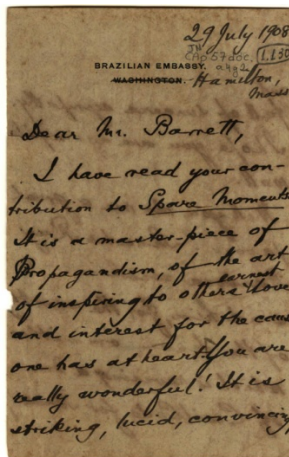 29 July 1908
JN
CAp 57 doc.
1.1.30
BRAZILIAN EMBASSY.
WASHINGTON. Hamilton,
Mass
Dear Mr. Barrett,
I have read your con-
tribution to Spare Moments
It is a master-piece of
Propagandism, of the art
of inspiring to others earnest love
and interest for the cause
one has at heart. You are
really wonderful! It is
striking, lucid, convincing,